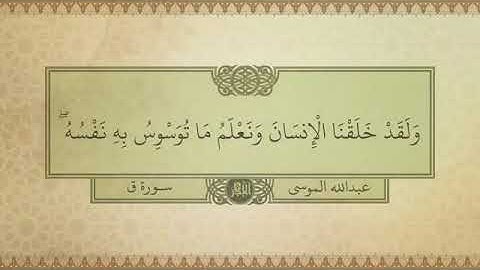 وَلَقَدْ خَلَقْنَا الْإِنسَانَ وَنَعْلَمُ مَا تُوَسْوِسُ بِهِ نَفْسُهُ ۖ
عبدالله الموسى سورة ق